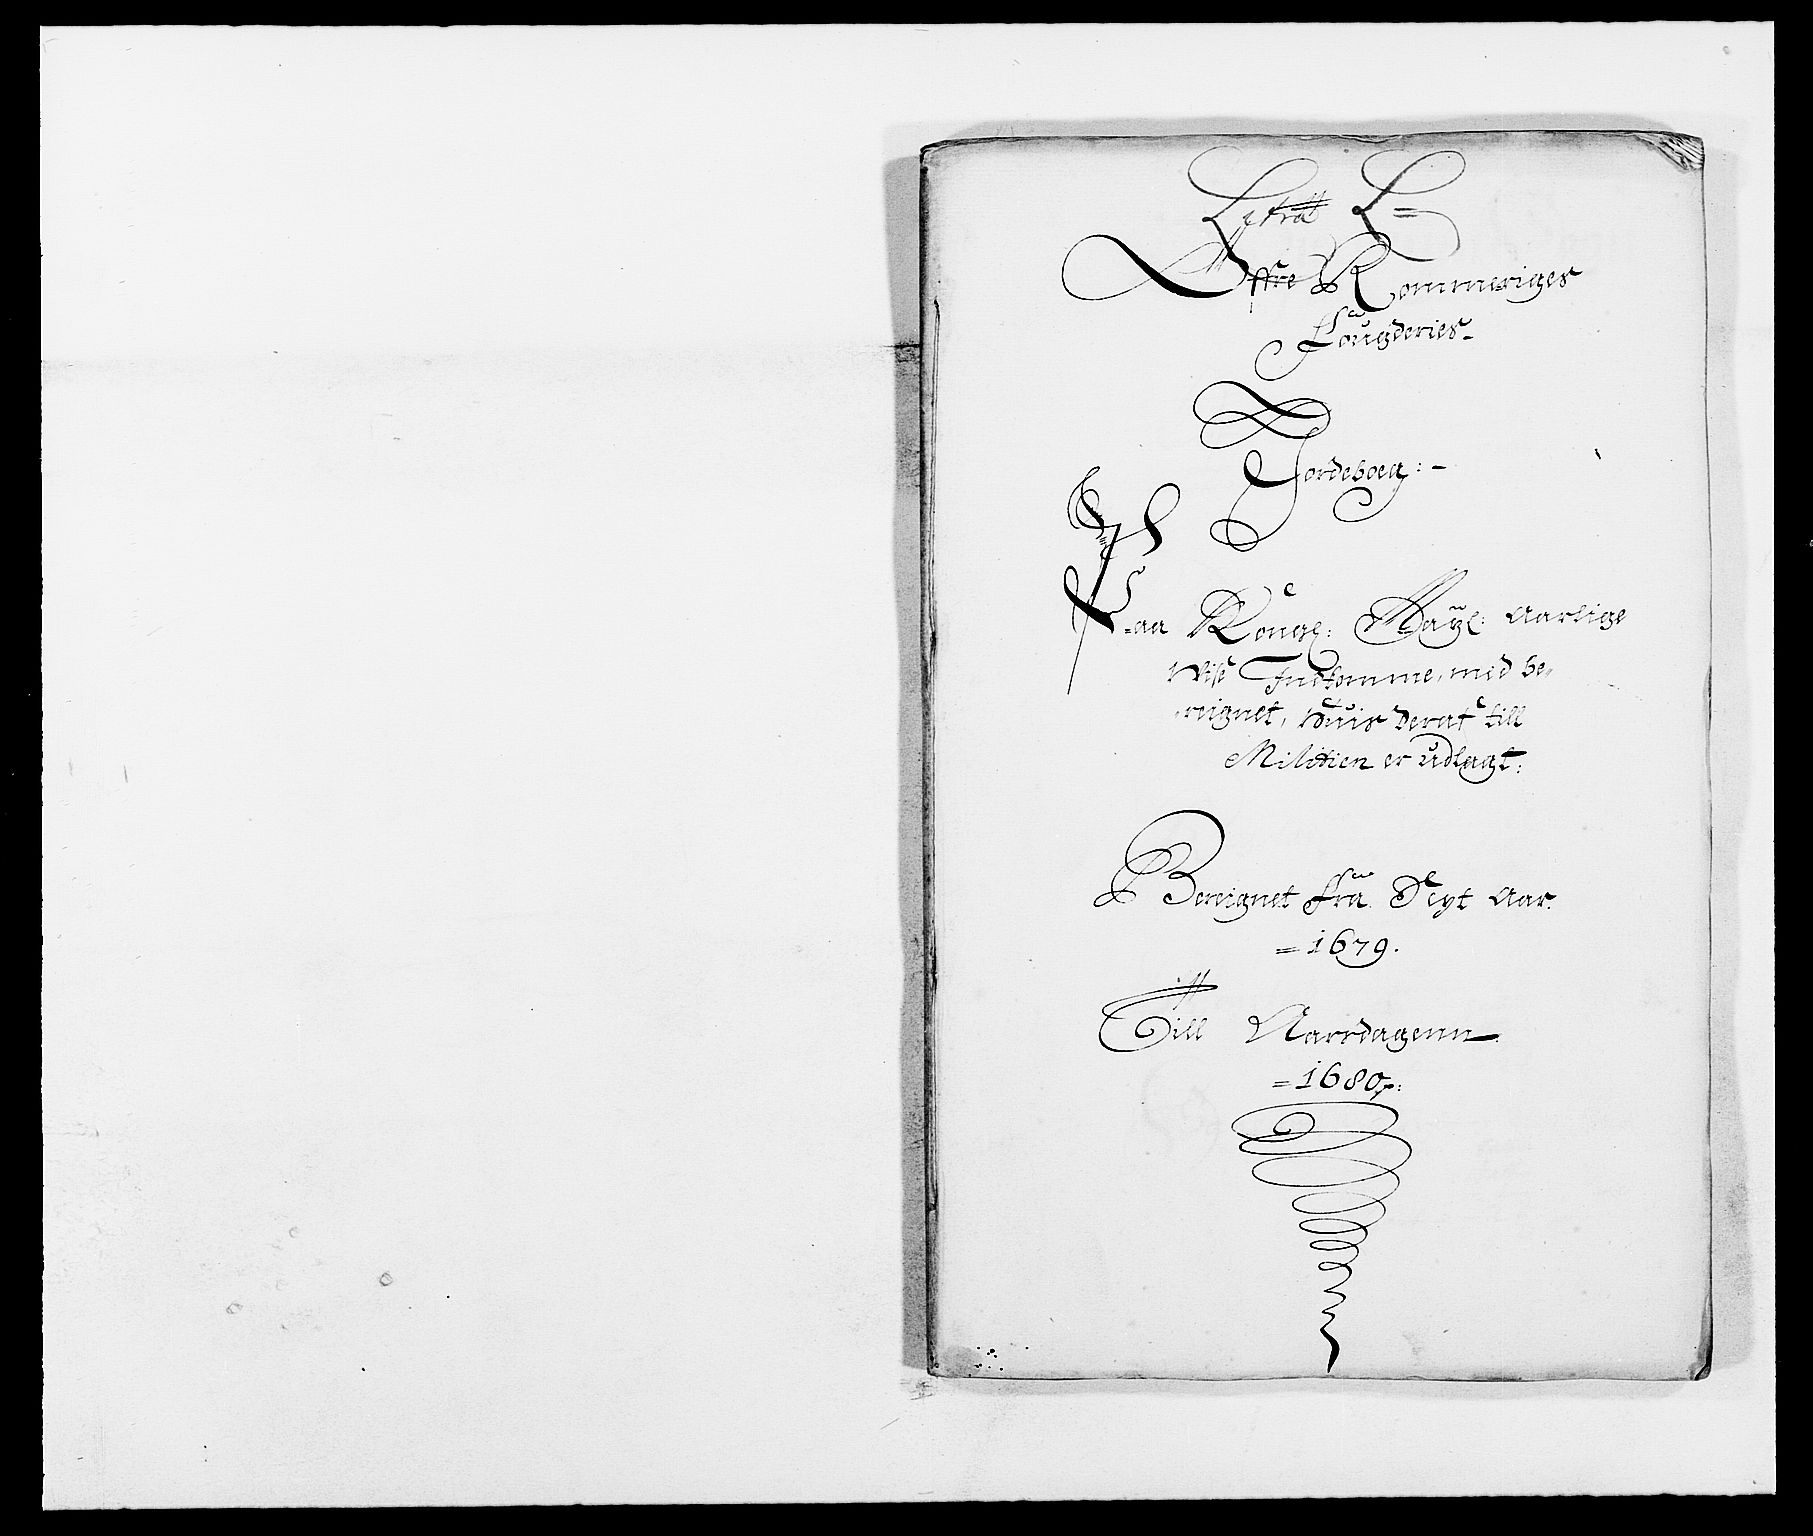 Litra L=
Öffre Rommeriges
Fougderies-
Jordeboeg:-
Paa Kongl: Mayl: Aarlige
Visse Indkomme, med be-
-reignet, Huis deraf till
Militien er udlagt:
Bereignet fra Nyt Aar.
=1679.
Till Aarsdagenn
=1680